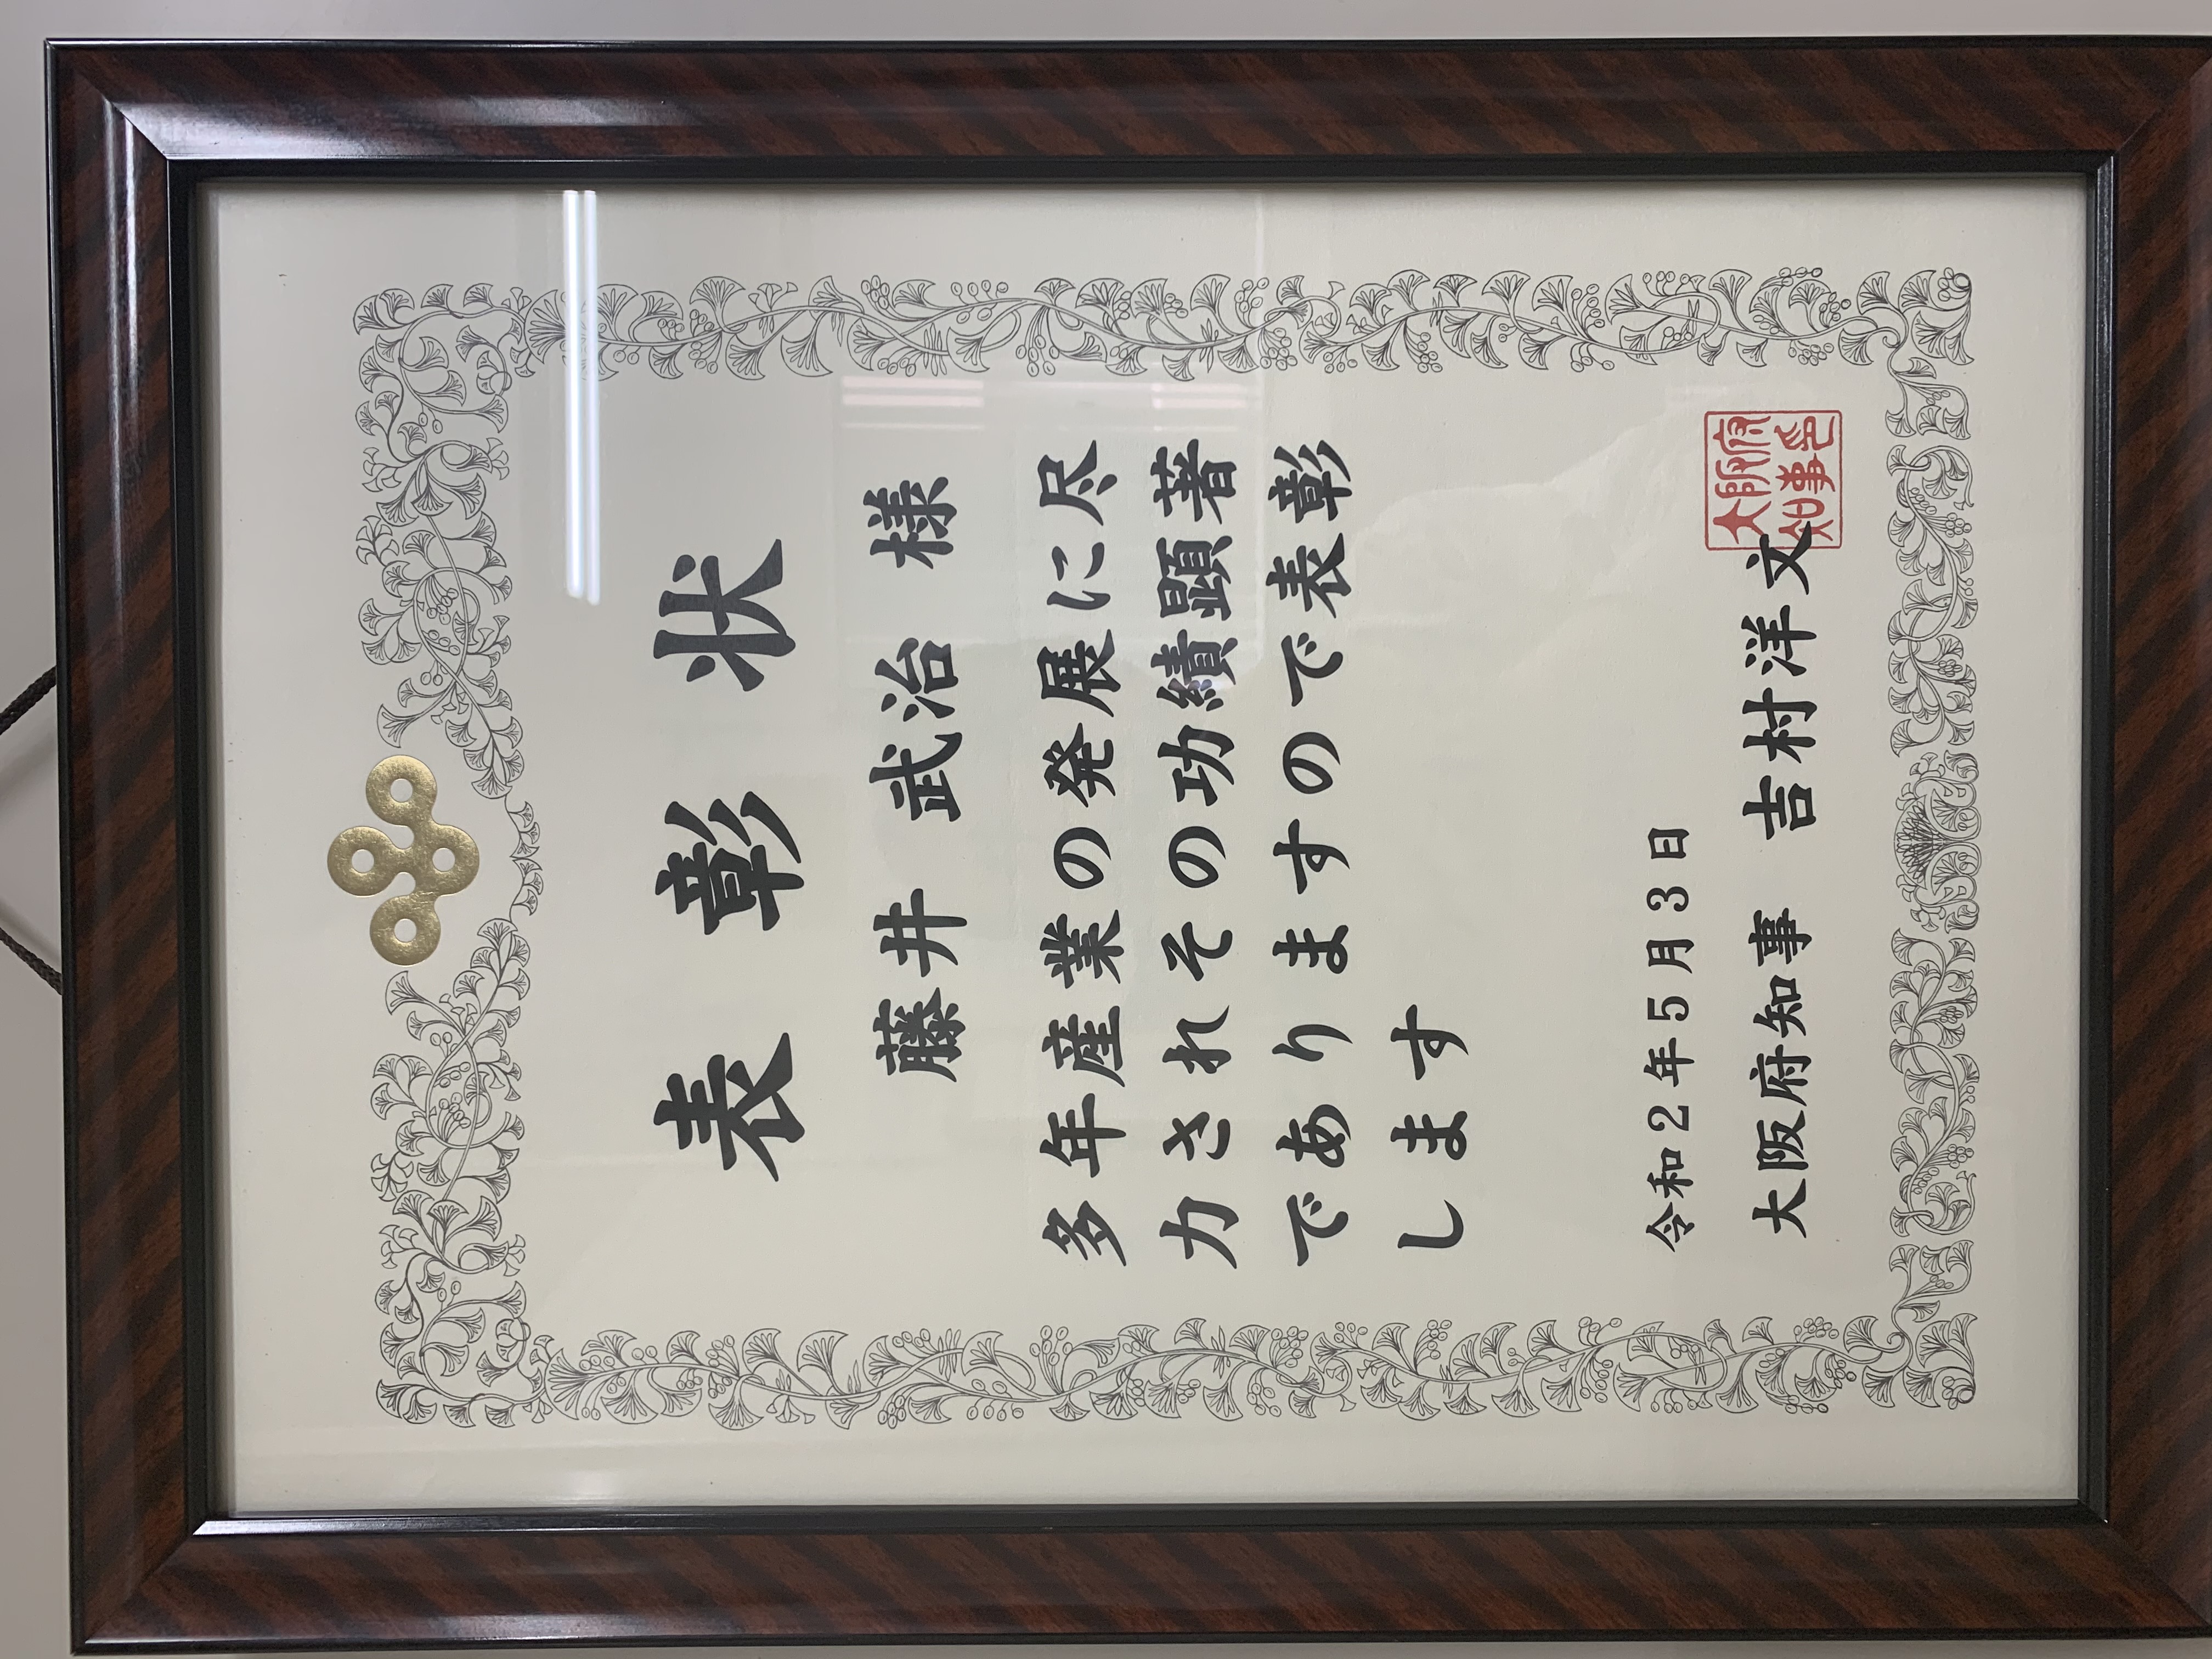 表彰状
藤井 武治 様
多年産業の発展に尽
力されその功績顕著
でありますので表彰
します
令和2年5月3日
大阪府知事 吉村洋文
大阪府
知事印